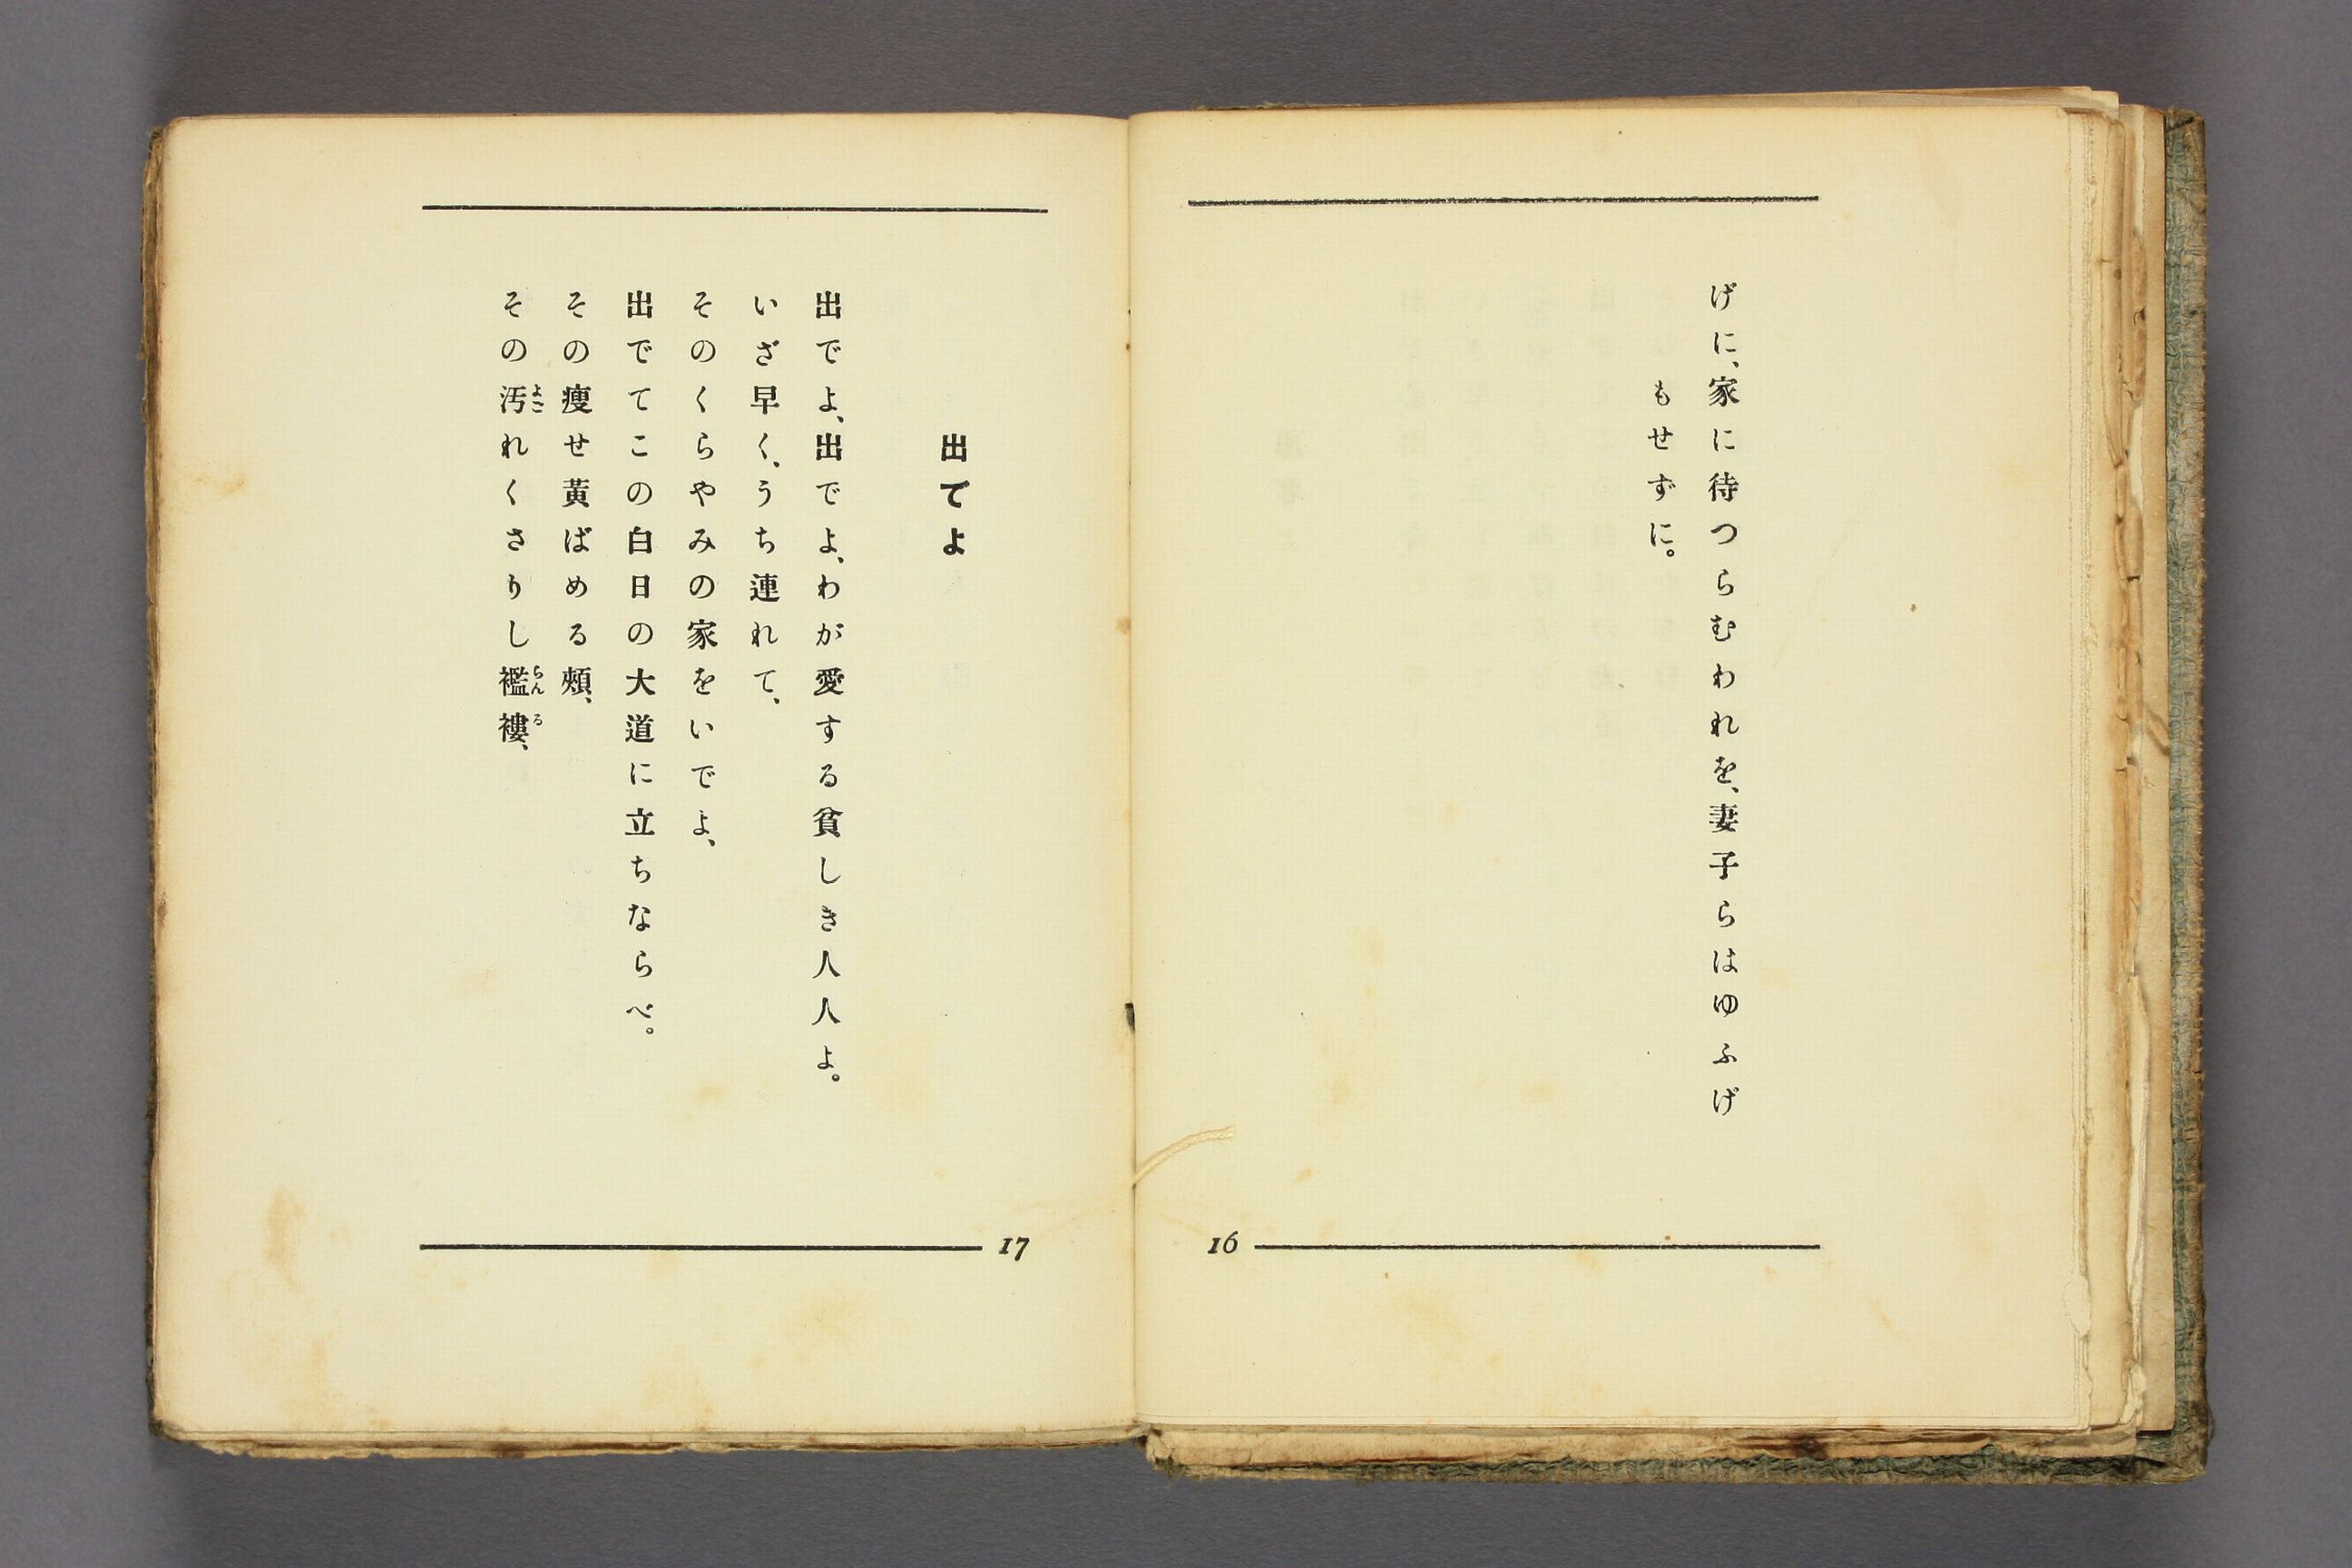 げに、家に待つらむわれを、妻子らはゆふげ
もせずに。
16
出でよ
出でよ、出でよ、わが愛する貧しき人人よ。
いざ早く、うち連れて、
そのくらやみの家をいでよ、
出でてこの白日の大道に立ちならべ。
その痩せ黄ばめる頬、
その汚れくさりし襤褸、
よご
らんる
17